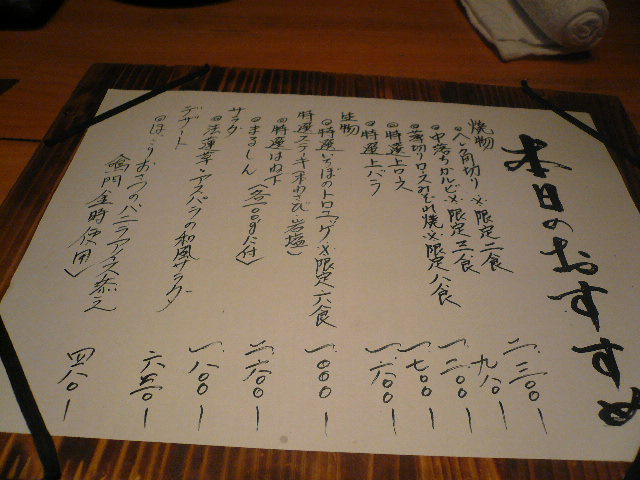 本日のおすすめ
焼物
◎八ヶ角切り ※限定二食 二、三〇〇ー
◎中落ちカルビ ※限定三食 九八〇ー
◎薄切りロースみぞれ焼 ※限定八食 一、二〇〇ー
◎特選上ロース 一、七〇〇ー
◎特選上バラ 一、六〇〇ー
生物
◎特選いちぼのトロユッケ ※限定六食 一、〇〇〇ー
特選ステーキ(本わさび、岩塩)
◎特選はね下 二、六〇〇ー
◎まるしん(各100gだ付) 一、八〇〇ー
サラダ
◎法蓮草・アスパラの和風サラダ 六五〇ー
デザート
◎ほっこりおさつのバニラアイス添え
(鳴門金時使用) 四八〇ー